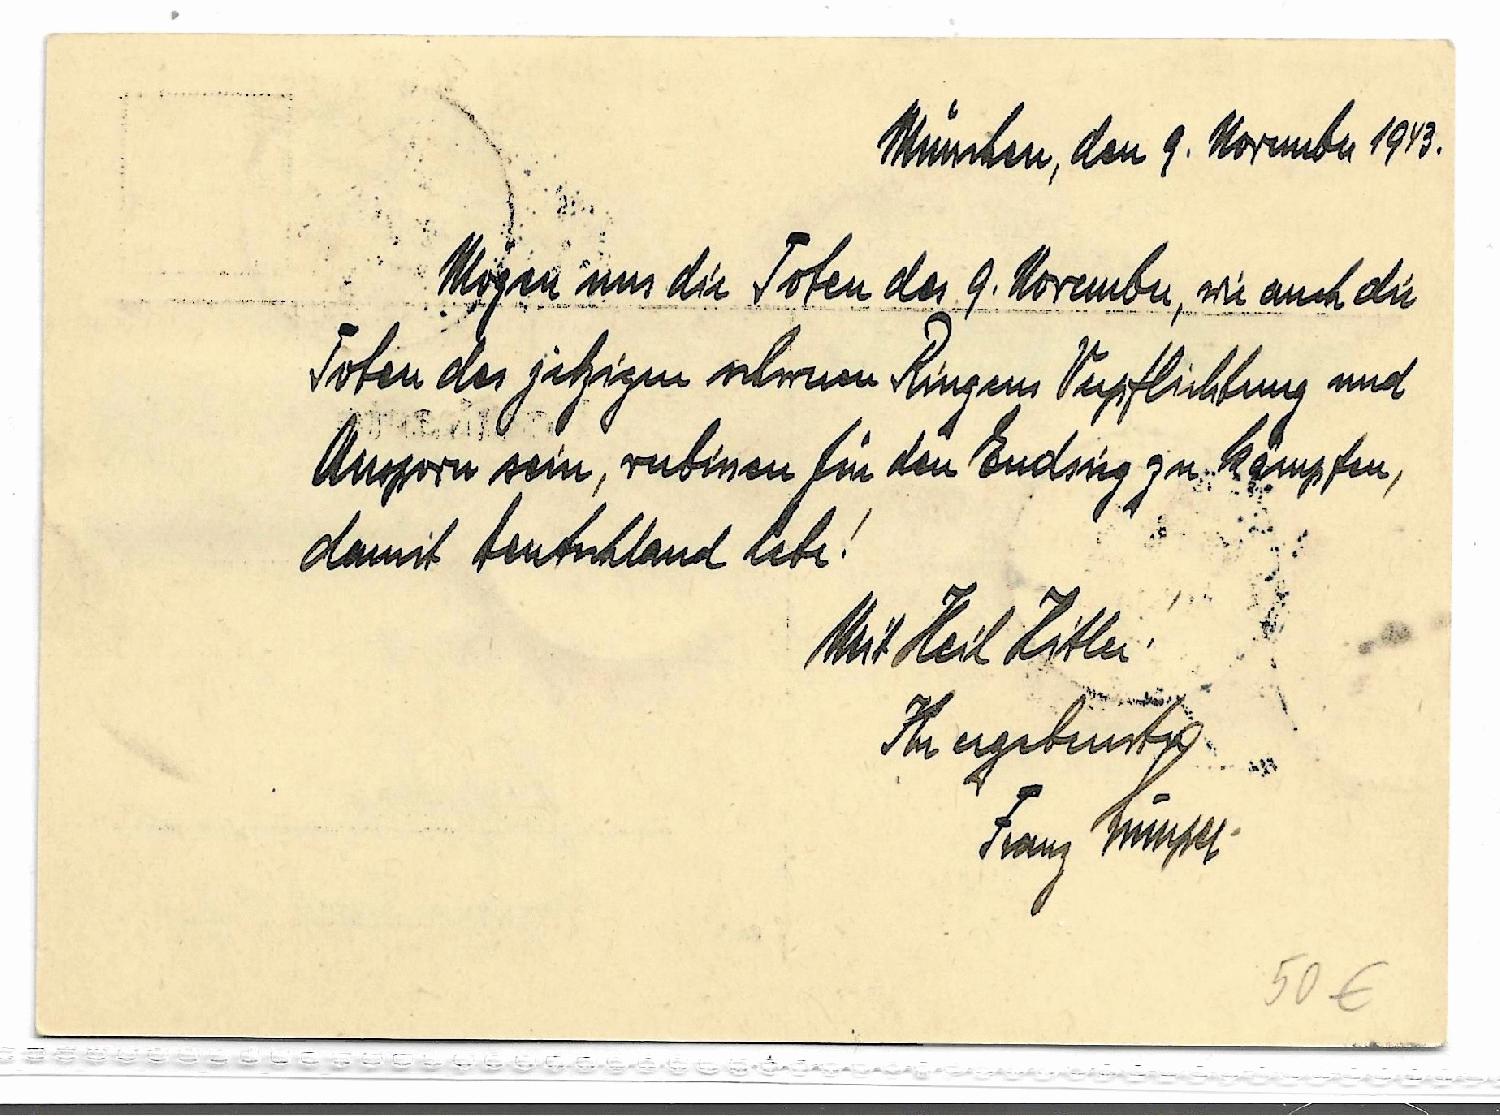 München, den 9. November 1943.
Mögen uns die Toten des 9. November, wie auch die
Toten des jetzigen schweren Ringens Verpflichtung und
Ansporn sein, verbissen für den Endsieg zu kämpfen,
damit Deutschland lebe!
Mit Heil Hitler!
Ihr ergebenster
Franz
50 €